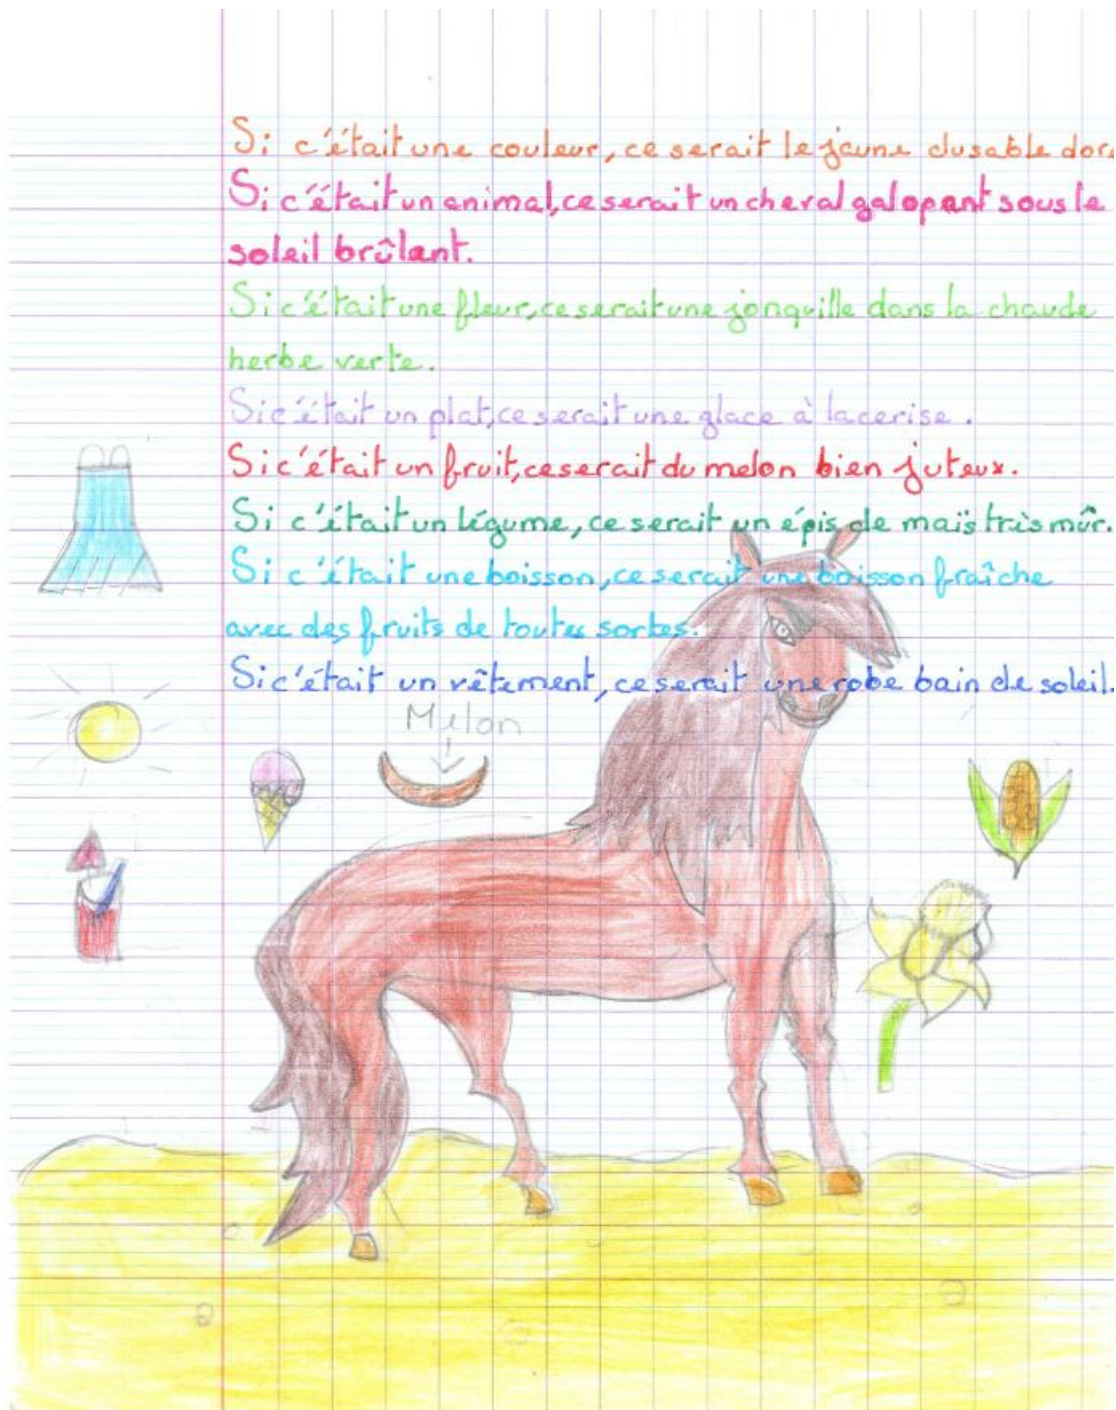 Si c'était une couleur, ce serait le jaune du sable doré
Si c'était un animal, ce serait un cheval galopant sous le
soleil brûlant.
Si c'était une fleur, ce serait une jonquille dans la chaude
herbe verte.
Si c'était un plat, ce serait une glace à la cerise.
Si c'était un fruit, ce serait du melon bien juteux.
Si c'était un légume, ce serait un épis de maïs très mûr.
Si c'était une boisson, ce serait une boisson fraîche
avec des fruits de toutes sortes.
Si c'était un vêtement, ce serait une robe bain de soleil.
Melon